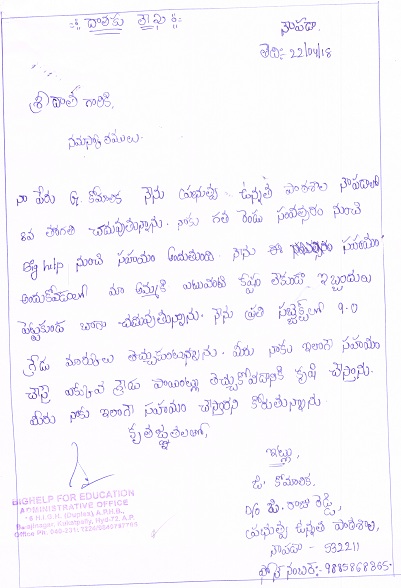 దాతకు లేఖ
నౌపడా.
తేది:- 22/04/18
శ్రీ దాత గారికి,
నమస్కారములు.
నా పేరు G. కోమాలిక నేను ప్రభుత్వ ఉన్నత పాఠశాల నౌపడాలో
8వ తరగతి చదువుతున్నాను. నాకు గత రెండు సంవత్సరం నుంచి
Big help నుంచి సహాయం అందుతుంది. నేను ఈ సహాయం
అందుకోవడంలో మా అమ్మకి ఎటువంటి కష్టం లేకుండా ఇబ్బందులు
పెట్టకుండ బాగా చదువుతున్నాను. నేను ప్రతి సబ్జెక్ట్‌లో 9.0
గ్రేడు మార్కులు తెచ్చుకుంటున్నాను. మీరు నాకు ఇలాగే సహాయం
చేస్తే ఎక్కువ గ్రేడు పాయింట్లు తెచ్చుకోవడానికి కృషి చేస్తాను.
మీరు నాకు ఇలాగే సహాయం చేస్తారని కోరుతున్నాను.
కృతజ్ఞతలతో,
ఇట్లు,
జి. కోమాలిక.
D/o జి. రాజు రెడ్డి,
ప్రభుత్వ ఉన్నత పాఠశాల,
నౌపడా - 532211
ఫోన్ నంబర్:- 9885868365.
BIGHELP FOR EDUCATION
ADMINISTRATIVE OFFICE